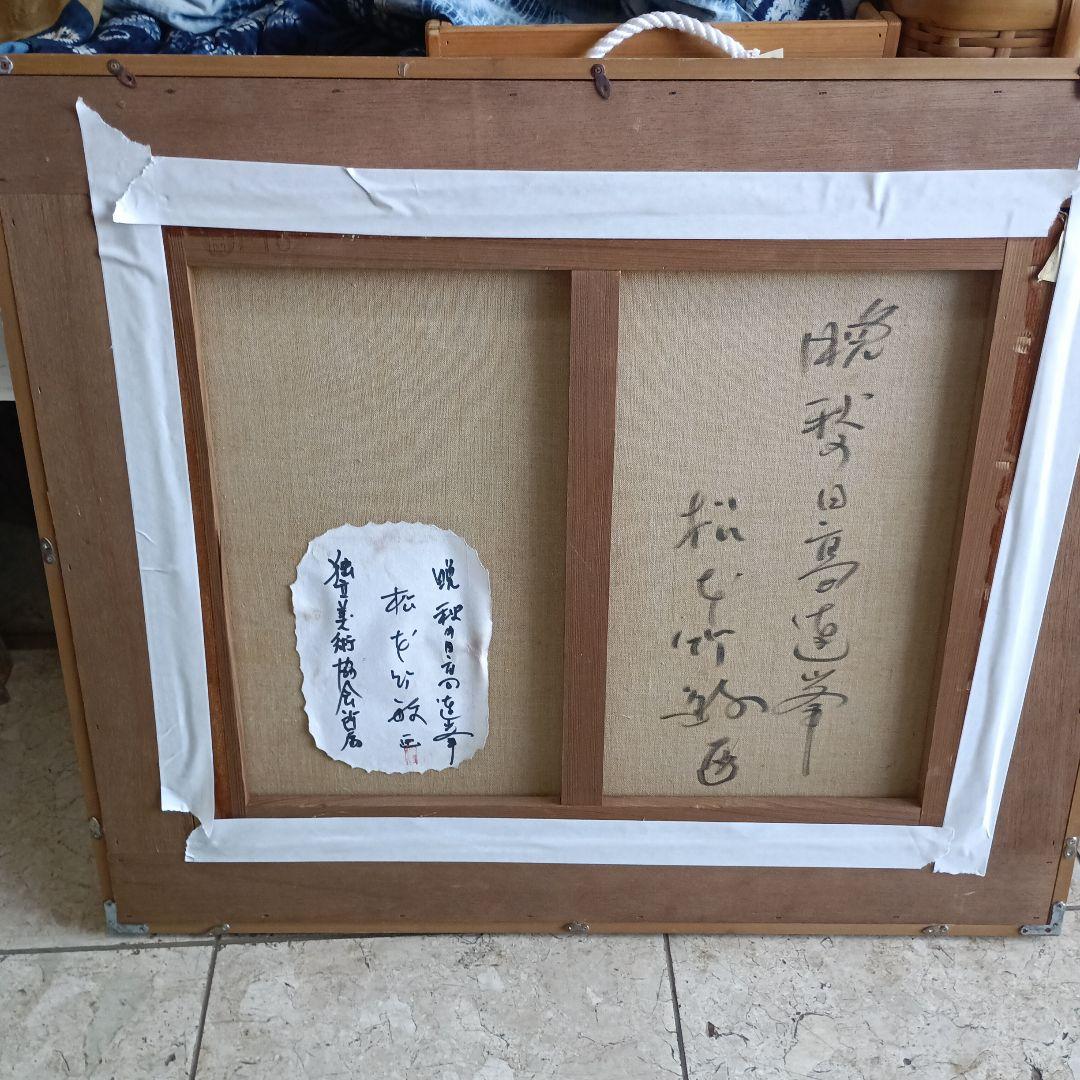 晩秋の日高連峯
松本竹敏画
晩秋の日高連峯
松本竹敏画
独立美術協会所属